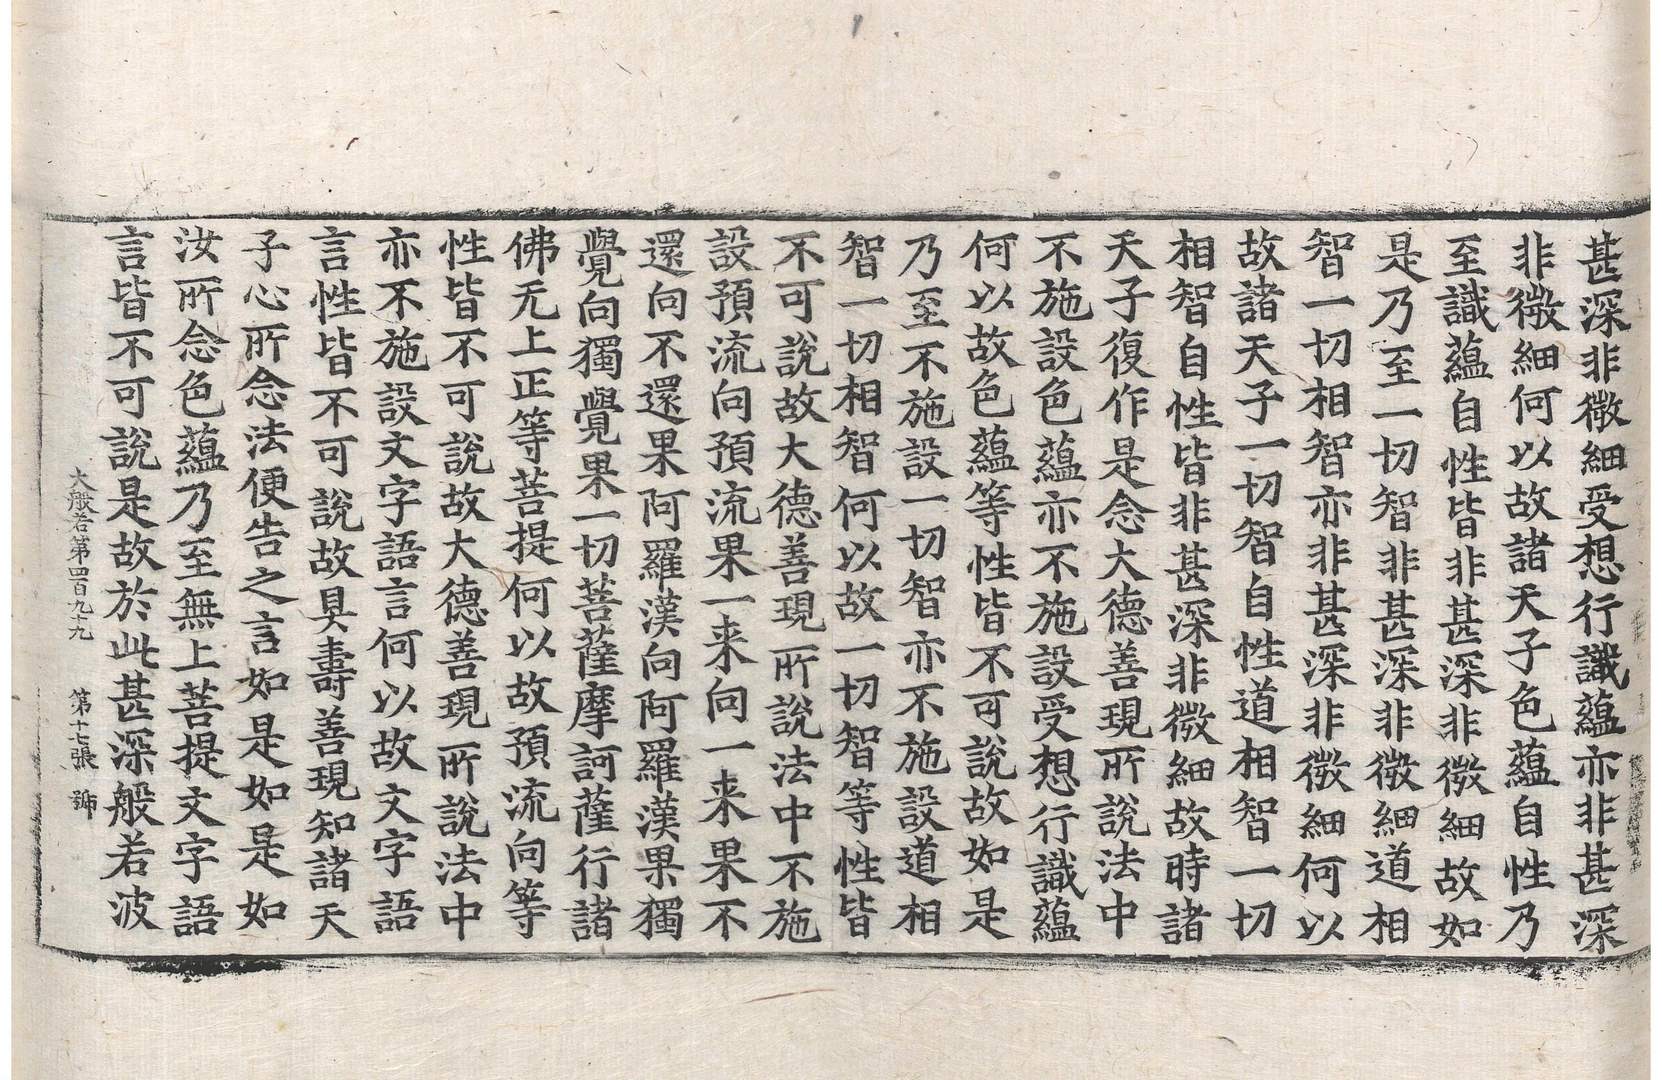 甚深非微細受想行識蘊亦非甚深
非微細何以故諸天子色蘊自性乃
至識蘊自性皆非甚深非微細故如
是乃至一切智非甚深非微細道相
智一切相智亦非甚深非微細何以
故諸天子一切智自性道相智一切
相智自性皆非甚深非微細故時諸
天子復作是念大德善現所說法中
不施設色蘊亦不施設受想行識蘊
何以故色蘊等性皆不可說故如是
乃至不施設一切智亦不施設道相
智一切相智何以故一切智等性皆
不可說故大德善現所說法中不施
設預流向預流果一来向一来果不
還向不還果阿羅漢向阿羅漢果獨
覺向獨覺果一切菩薩摩訶薩行諸
佛无上正等菩提何以故預流向等
性皆不可說故大德善現所說法中
亦不施設文字語言何以故文字語
言性皆不可說故具壽善現知諸天
子心所念法便告之言如是如是如
汝所念色蘊乃至無上菩提文字語
言皆不可說是故於此甚深般若波
大般若第四百九十九 第十七張 師